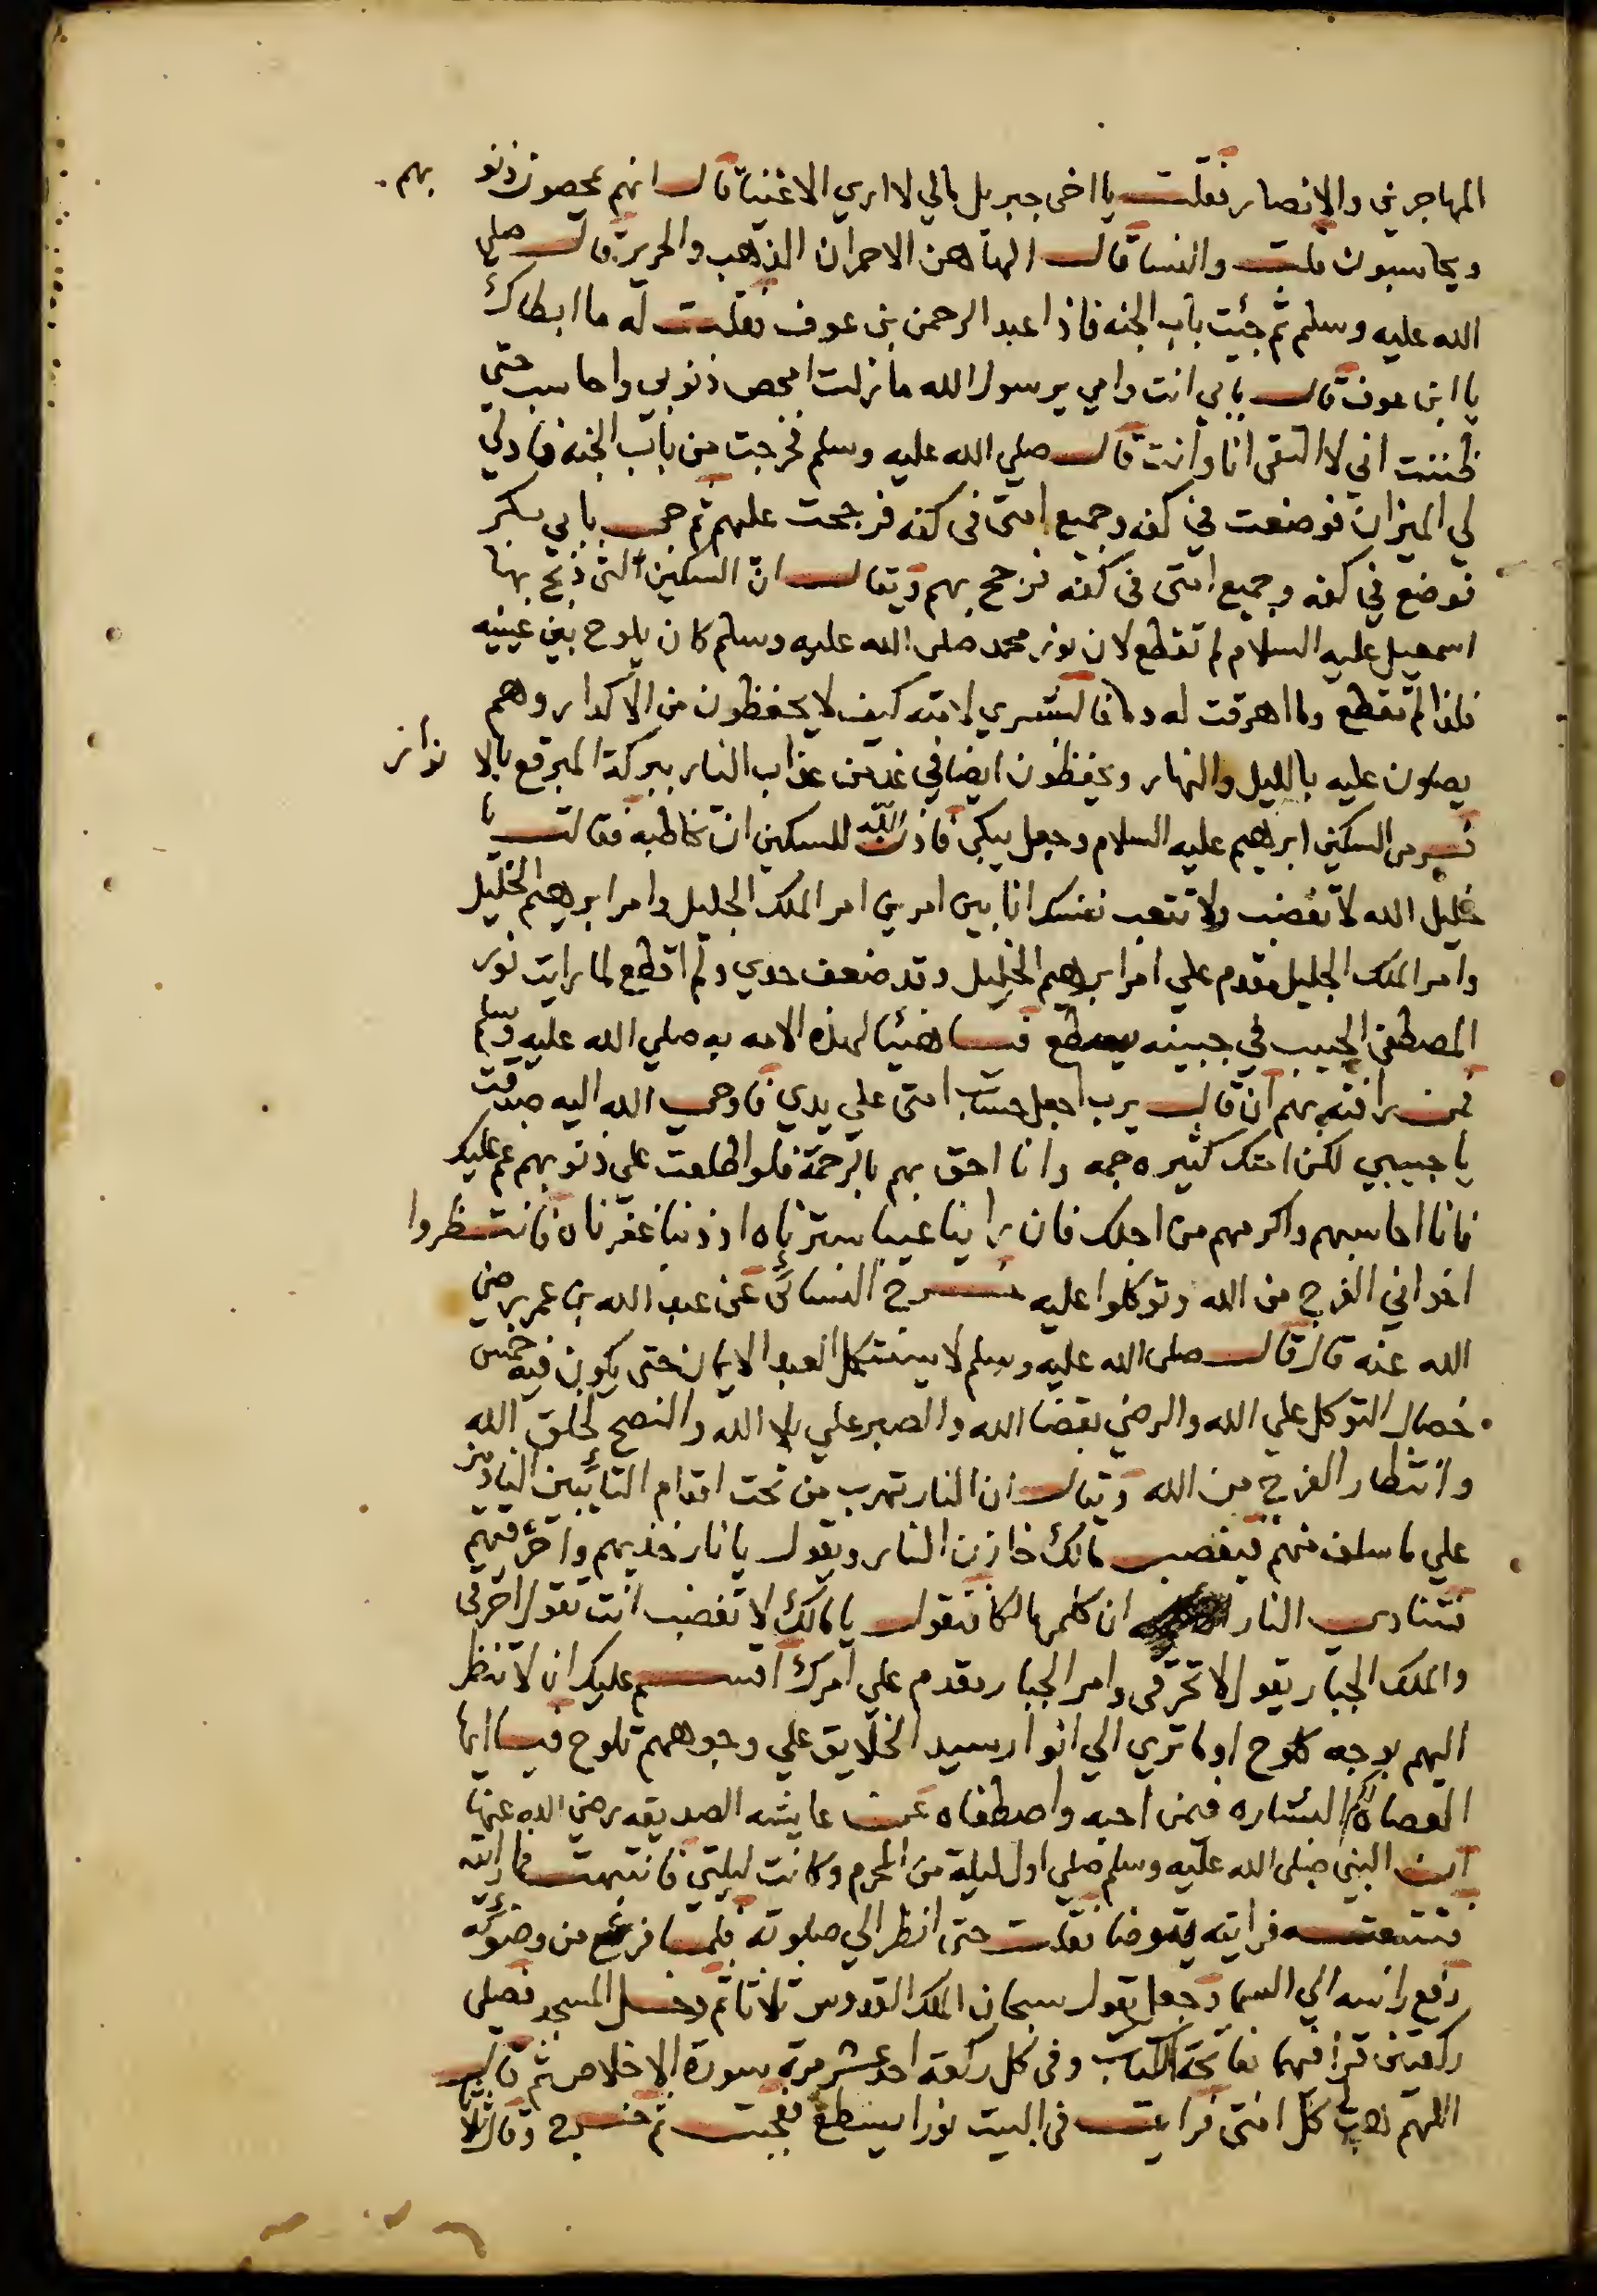 المهاجرين والانصار فقلت يا اخى جبريل مالي لا اري الاغنيا قال انهم يمحصون ذنوبهم
ويحاسبون قلت والنسا قال الهاهن الاحمران الذهب والحرير قال صلي
الله عليه وسلم ثم جئت باب الجنه فاذا عبد الرحمن بن عوف فقلت له ما ابطاك
يا ابن عوف قال بابي انت وامي يرسول الله ما زلت امحص ذنوبي واحاسب حتي
ظننت اني لا التقى انا وانت قال صلي الله عليه وسلم فخرجت من باب الجنه فادلي
لي الميزان فوضعت في كفه وجميع امتى فى كفه فرجحت عليهم ثم جى بابي بكر
فوضع في كفه وجميع امتى فى كفه فرجح بهم ويقال ان السكين التى ذبح بها
اسمعيل عليه السلام لم تقطع لان نور محمد صلى الله عليه وسلم كان يلوح بين عينيه
فلذا لم تقطع ولا اهرقت له دما فالبشري لامته كيف لا يحفظون من الاكدار وهم
يصلون عليه بالليل والنهار ويحفظون ايضا في غد من عذاب النار ببركة المبرقع بالانوار
فرمى السكين ابرهيم عليه السلام وجعل يبكى فاذن الله للسكين ان تخاطبه فقالت يا
خليل الله لا تغضب ولا تتعب نفسك انا بين امرين امر الملك الجليل وامر ابرهيم الخليل
وامر الملك الجليل مقدم علي امر ابرهيم الخليل وقد ضعف حدي ولم اقطع لما رايت نور
المصطفى الحبيب في جبينه يسطع فيا هنيا لهذه الامه به صلي الله عليه وسلم
فمن رافته بهم ان قال يرب اجعل حساب امتى علي يدي فاوحى الله اليه صدقت
يا حبيبي لكن امتك كثيره جمه وانا احق بهم بالرحمة فلو اطلعت على ذنوبهم عم عليك
فانا احاسبهم واكرمهم من اجلك فان راينا عيبا سترناه او ذنبا غفرناه فانتظروا
اخواني الفرج من الله وتوكلوا عليه خرج النسائى عن عبد الله بن عمر رضي
الله عنه قال قال صلى الله عليه وسلم لا يستكمل العبد الايمان حتى يكون فيه خمس
خصال التوكل علي الله والرضي بقضا الله والصبر علي بلا الله والنصح لخلق الله
وانتظار الفرج من الله ويقال ان النار تهرب من تحت اقدام التائبين النادمين
علي ما سلف منهم فيغضب مالك خازن النار ويقول يا نار خذيهم واحرقيهم
فتنادى النار ان كلمى مالكا فتقول يا مالك لا تغضب انت تقول احرقى
والملك الجبار يقول لا تحرقى وامر الجبار مقدم علي امرك اقسم عليك ان لا تنظر
اليهم بوجه كلوح اوما تري الي انوار سيد الخلايق علي وجوههم تلوح فيا ايها
العصاة لكم البشاره فمن احبه واصطفاه عن عايشه الصديقه رضي الله عنها
ان النبي صلى الله عليه وسلم صلي اول ليلة من المحرم وكانت ليلتي فانتبهت فما رايته
فتتبعته فرايته يتوضا فقلت حتى انظر الي صلوته فلما فرغ من وضوئه
رفع راسه الي السما وجعل يقول سبحان الملك القدوس ثلاثا ثم دخل المسجد فصلي
ركعتين قرا فيهما بفاتحة الكتاب وفى كل ركعه احد عشر مرة سورة الاخلاص ثم قال
اللهم هب كل امتى فرايت فى البيت نورا يسطع فعجبت ثم خرج وقال ثلاثا